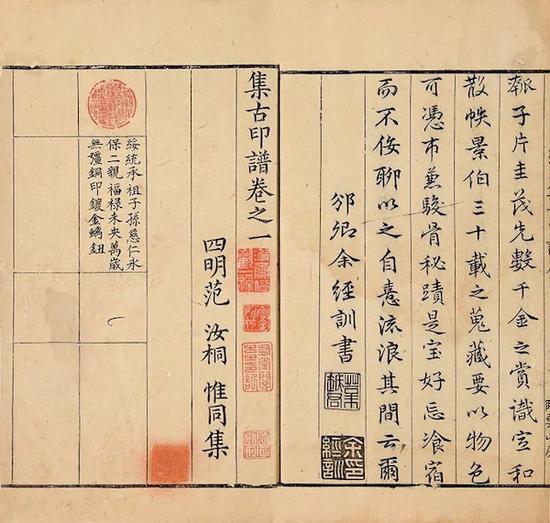 瓻子片圭茂先數千金之賞識宣和
散帙景伯三十載之蒐藏要以物色
可憑市兼駿骨秘蹟是宝好忌飱宿
而不佞聊以之自憙流浪其間云爾
邠卿余經訓書
集古印譜卷之一
四明范 汝桐 惟同集
綏統承祖子孫慈仁永
保二親福祿未央萬歲
無疆銅印鍍金螭鈕